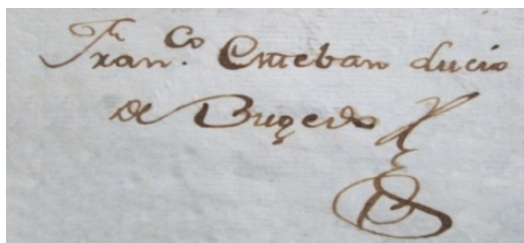 Fran.co Esteban Lucio
de Bugedo